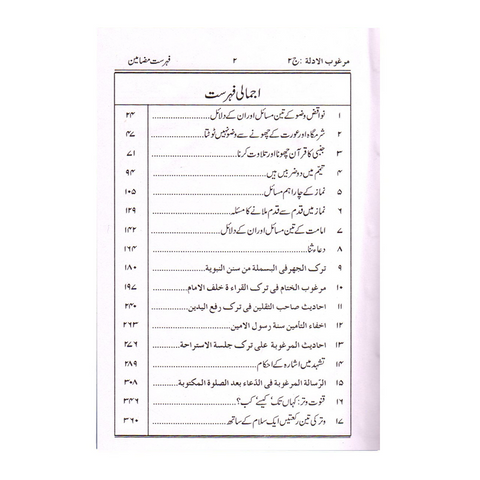 مرغوب الادلة : ج ۲ ۲ فہرست مضامین
اجمالی فہرست
۱ نواقض وضو کے تین مسائل اور ان کے دلائل ۲۴
۲ شرمگاہ اور عورت کے چھونے سے وضو نہیں ٹوٹتا ۴۷
۳ جنبی کا قرآن چھونا اور تلاوت کرنا ۷۱
۴ تیمّم میں دو ضربیں ہیں ۹۴
۵ نماز کے چار اہم مسائل ۱۰۵
۶ نماز میں قدم سے قدم ملانے کا مسئلہ ۱۲۹
۷ امامت کے تین مسائل اور ان کے دلائل ۱۴۲
۸ دعاء ثنا ۱۶۴
۹ ترک الجهر فی البسملة من سنن النبوية ۱۸۰
۱۰ مرغوب الختام فی ترک القراء ة خلف الامام ۱۹۷
۱۱ احادیث صاحب الثقلین فی ترک رفع الیدین ۲۴۰
۱۲ اخفاء التأمین سنة رسول الامین ۲۶۳
۱۳ احادیث المرغوبة علی ترک جلسة الاستراحة ۲۷۶
۱۴ تشہد میں اشارہ کے احکام ۲۸۹
۱۵ الرّسالة المرغوبة فی الدّعاء بعد الصلوة المکتوبة ۳۰۸
۱۶ قنوت وتر: کہاں تک‘ کیسے‘ کب؟ ۳۴۶
۱۷ وتر کی تین رکعتیں ایک سلام کے ساتھ ۳۶۰